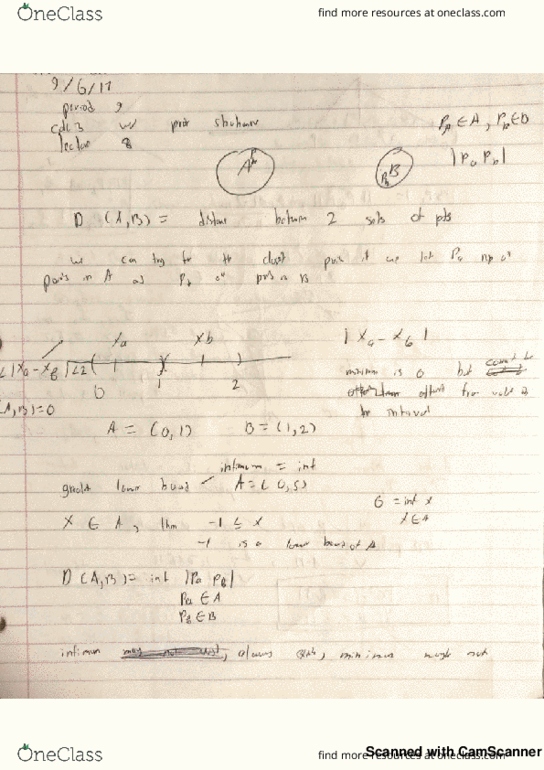 OneClass
find more resources at oneclass.com
9/6/17
period 9
calc 3 w/ prof
lecture 8
P_A ∈ A, P_B ∈ B
|P_a P_b|
A
B
D (A,B) = distance between 2 sets of pts
we can try for the closest pair if we let P_a
points in A as P_b
x_a x_b
|x_a - x_b|
|x_a - x_b| < 2
0 1 2
minimum is 0 but
(A,B) = 0
interval
A = (0,1) B = (1,2)
infimum = inf
greatest lower bound A = (0,5)
0 = inf x
x ∈ A
x ∈ A, then -1 ≤ x
-1 is a lower bound of A
D (A,B) = inf |P_a P_b|
P_a ∈ A
P_b ∈ B
infimum may not exist, always exists, minimum might not
OneClass
find more resources at oneclass.com
Scanned with CamScanner